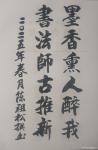 墨香熏人醉我
書法師古推新
二〇二五年春月陈祖松撰并